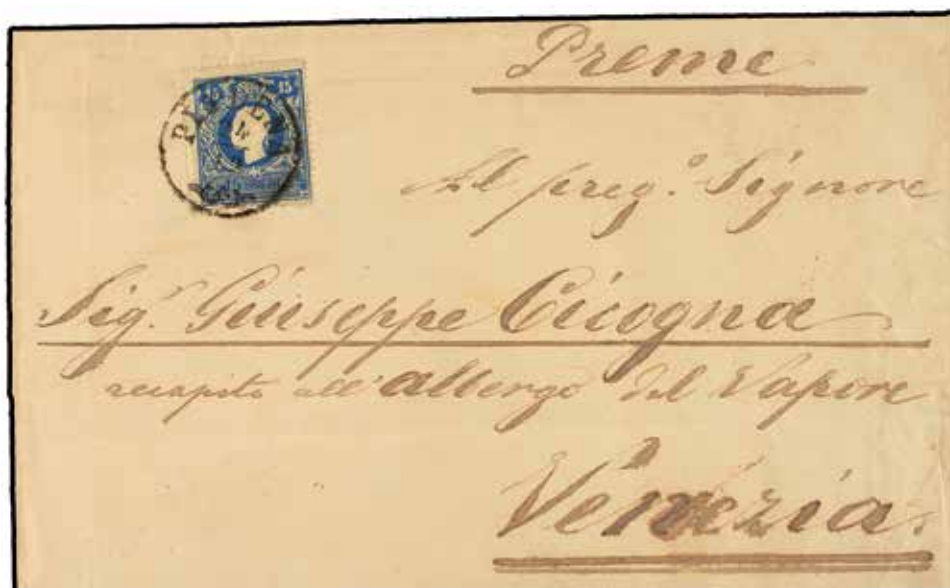 Preme
15
Al preg.º Signore
Sig.r Giuseppe Cicogna
recapito all'albergo del Vapore
Venezia.